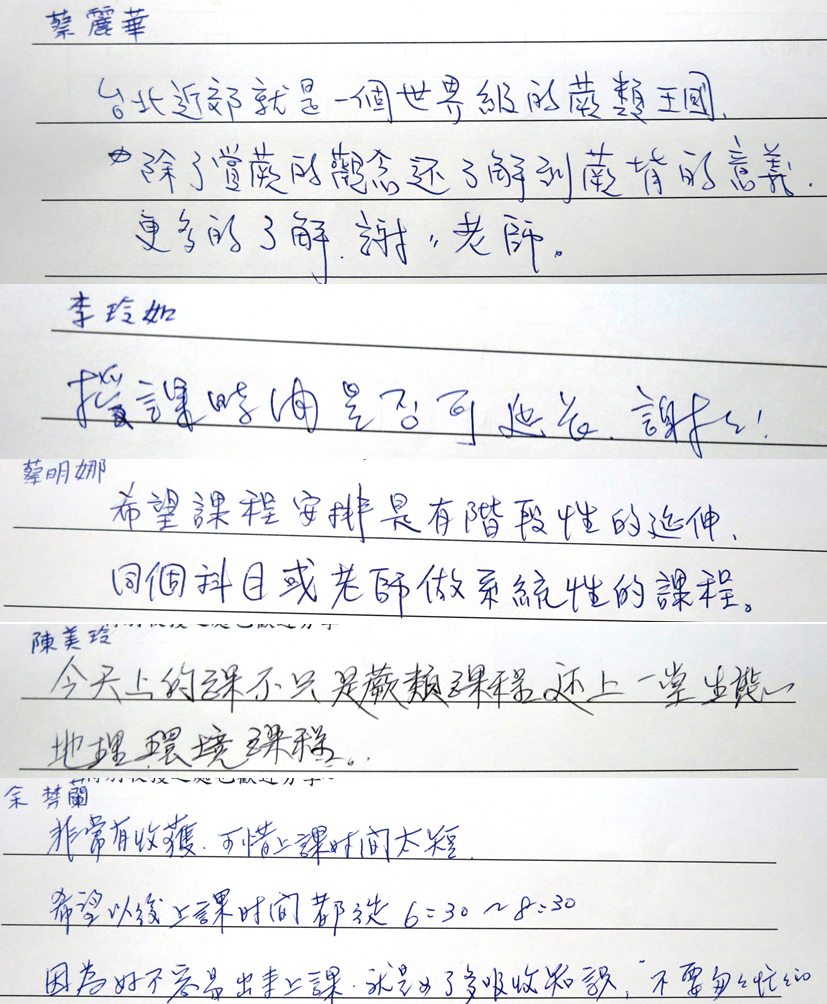 蔡麗華
台北近郊就是一個世界級的蕨類王國.
除了賞蕨的觀念还了解到蕨背的意義.
更多的了解.謝〃老師。
李玲如
授課時間是否可延長.謝謝!
蔡明娜
希望課程安排是有階段性的延伸,
同個科目或老師做系統性的課程。
陳美玲
今天上的課不只是蕨類課程,还上一堂生態
地理環境課程。
余 蘭
非常有收獲.可惜上課时间太短
希望以後上課时间都是 6:30~8:30
因為好不容易出来上課.就是為了多吸收知識,不要匆匆忙忙的